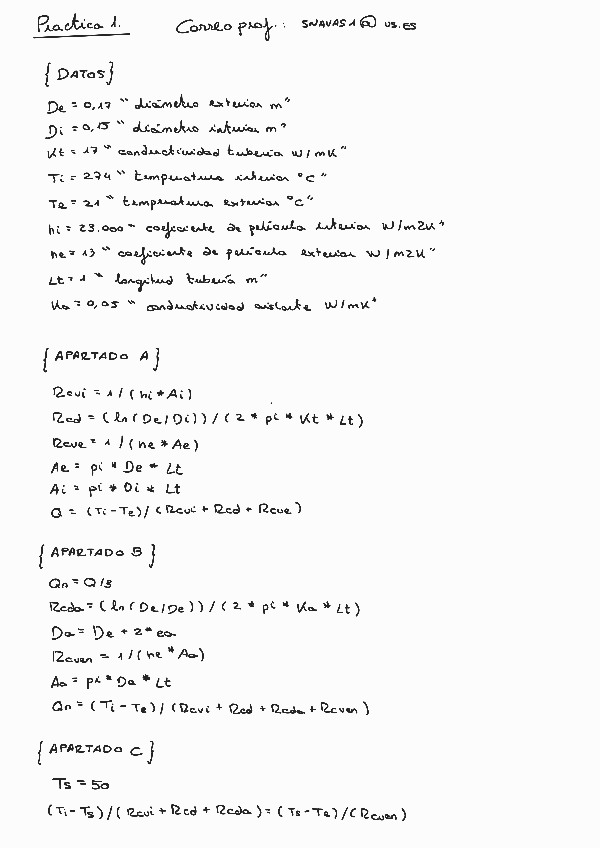 Practica 1. Correo prof.: SNAVAS1@US.ES
{DATOS}
De = 0,17 " diámetro exterior m"
Di = 0,15 " diámetro interior m"
Kt = 17 " conductividad tubería W/mK"
Ti = 274 " temperatura interior °C"
Te = 21 " temperatura exterior °C"
hi = 23.000 " coeficiente de película interior W/m2K"
he = 13 " coeficiente de película exterior W/m2K"
Lt = 1 " longitud tubería m"
Ka = 0,05 " conductividad aislante W/mK"
{APARTADO A}
Rcvi = 1/(hi*Ai)
Rcd = (ln(De/Di))/(2*pi*Kt*Lt)
Rcve = 1/(he*Ae)
Ae = pi*De*Lt
Ai = pi*Di*Lt
Q = (Ti-Te)/(Rcvi+Rcd+Rcve)
{APARTADO B}
Qn = Q/5
Rcda = (ln(De/De))/(2*pi*Ka*Lt)
Da = De + 2*ea
Rcven = 1/(he*Aa)
Aa = pi*Da*Lt
Qn = (Ti-Te)/(Rcvi+Rcd+Rcda+Rcven)
{APARTADO C}
Ts = 50
(Ti-Ts)/(Rcvi+Rcd+Rcda) = (Ts-Te)/(Rcven)